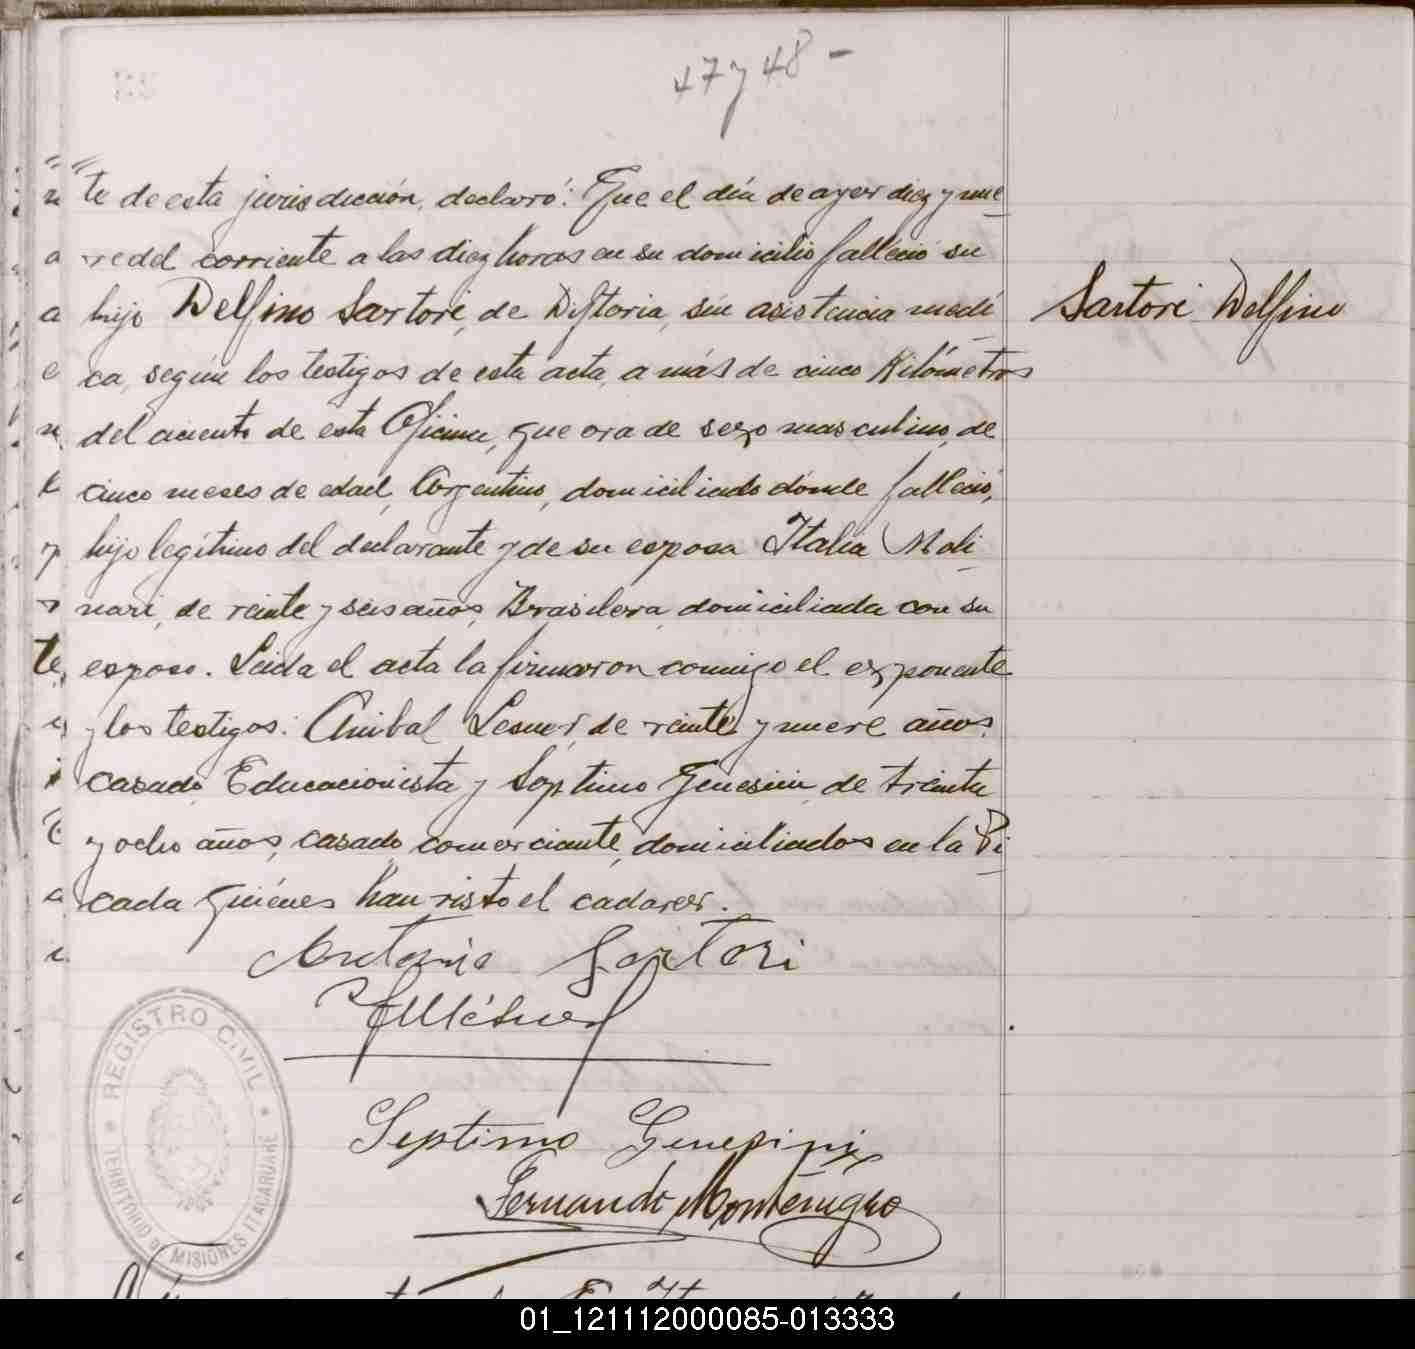 47 y 48 -
te de esta jurisdicción, declaró: Que el día de ayer diez y nue
ve del corriente a las diez horas en su domicilio falleció su
hijo Delfino Sartori, de Diftoria, sin asistencia medi
ca, según los testigos de esta acta, a más de cinco Kilómetros
del aciento de esta Oficina, que era de sexo masculino, de
cinco meses de edad, Argentino, domiciliado dónde falleció,
hijo legítimo del declarante y de su esposa Italia Moli
nari, de veinte y seis años, Brasilera, domiciliada con su
esposo. Leida el acta la firmaron conmigo el exponente
y los testigos: Anibal Lesner, de veinte y nueve años,
casado, Educacionista y Séptimo Genesini, de treinta
y ocho años, casado, comerciante, domiciliados en la Pi
cada quiénes han visto el cadaver.
Sartori Delfino
Antonio Sartori
Septimo Genesini
Fernando Montenegro
REGISTRO CIVIL
TERRITORIO DE MISIONES ITACARUARE
01_121112000085-013333